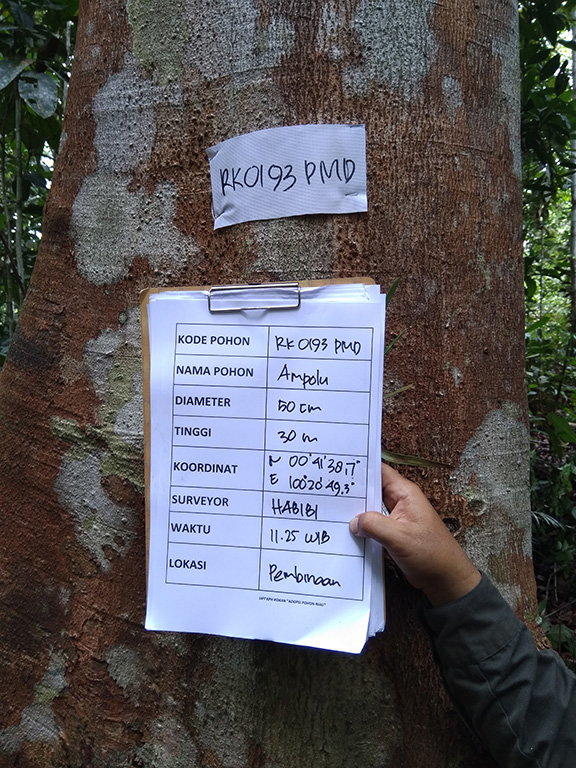 RK0193 PMD
KODE POHON RK 0193 PMD
NAMA POHON Ampolu
DIAMETER 50 cm
TINGGI 30 m
KOORDINAT N 00°41'38,7"
E 100°20'49.3"
SURVEYOR HABIBI
WAKTU 11.25 WIB
LOKASI Pembinaan
UPT KPH ROKAN "ADOPSI POHON RIAU"